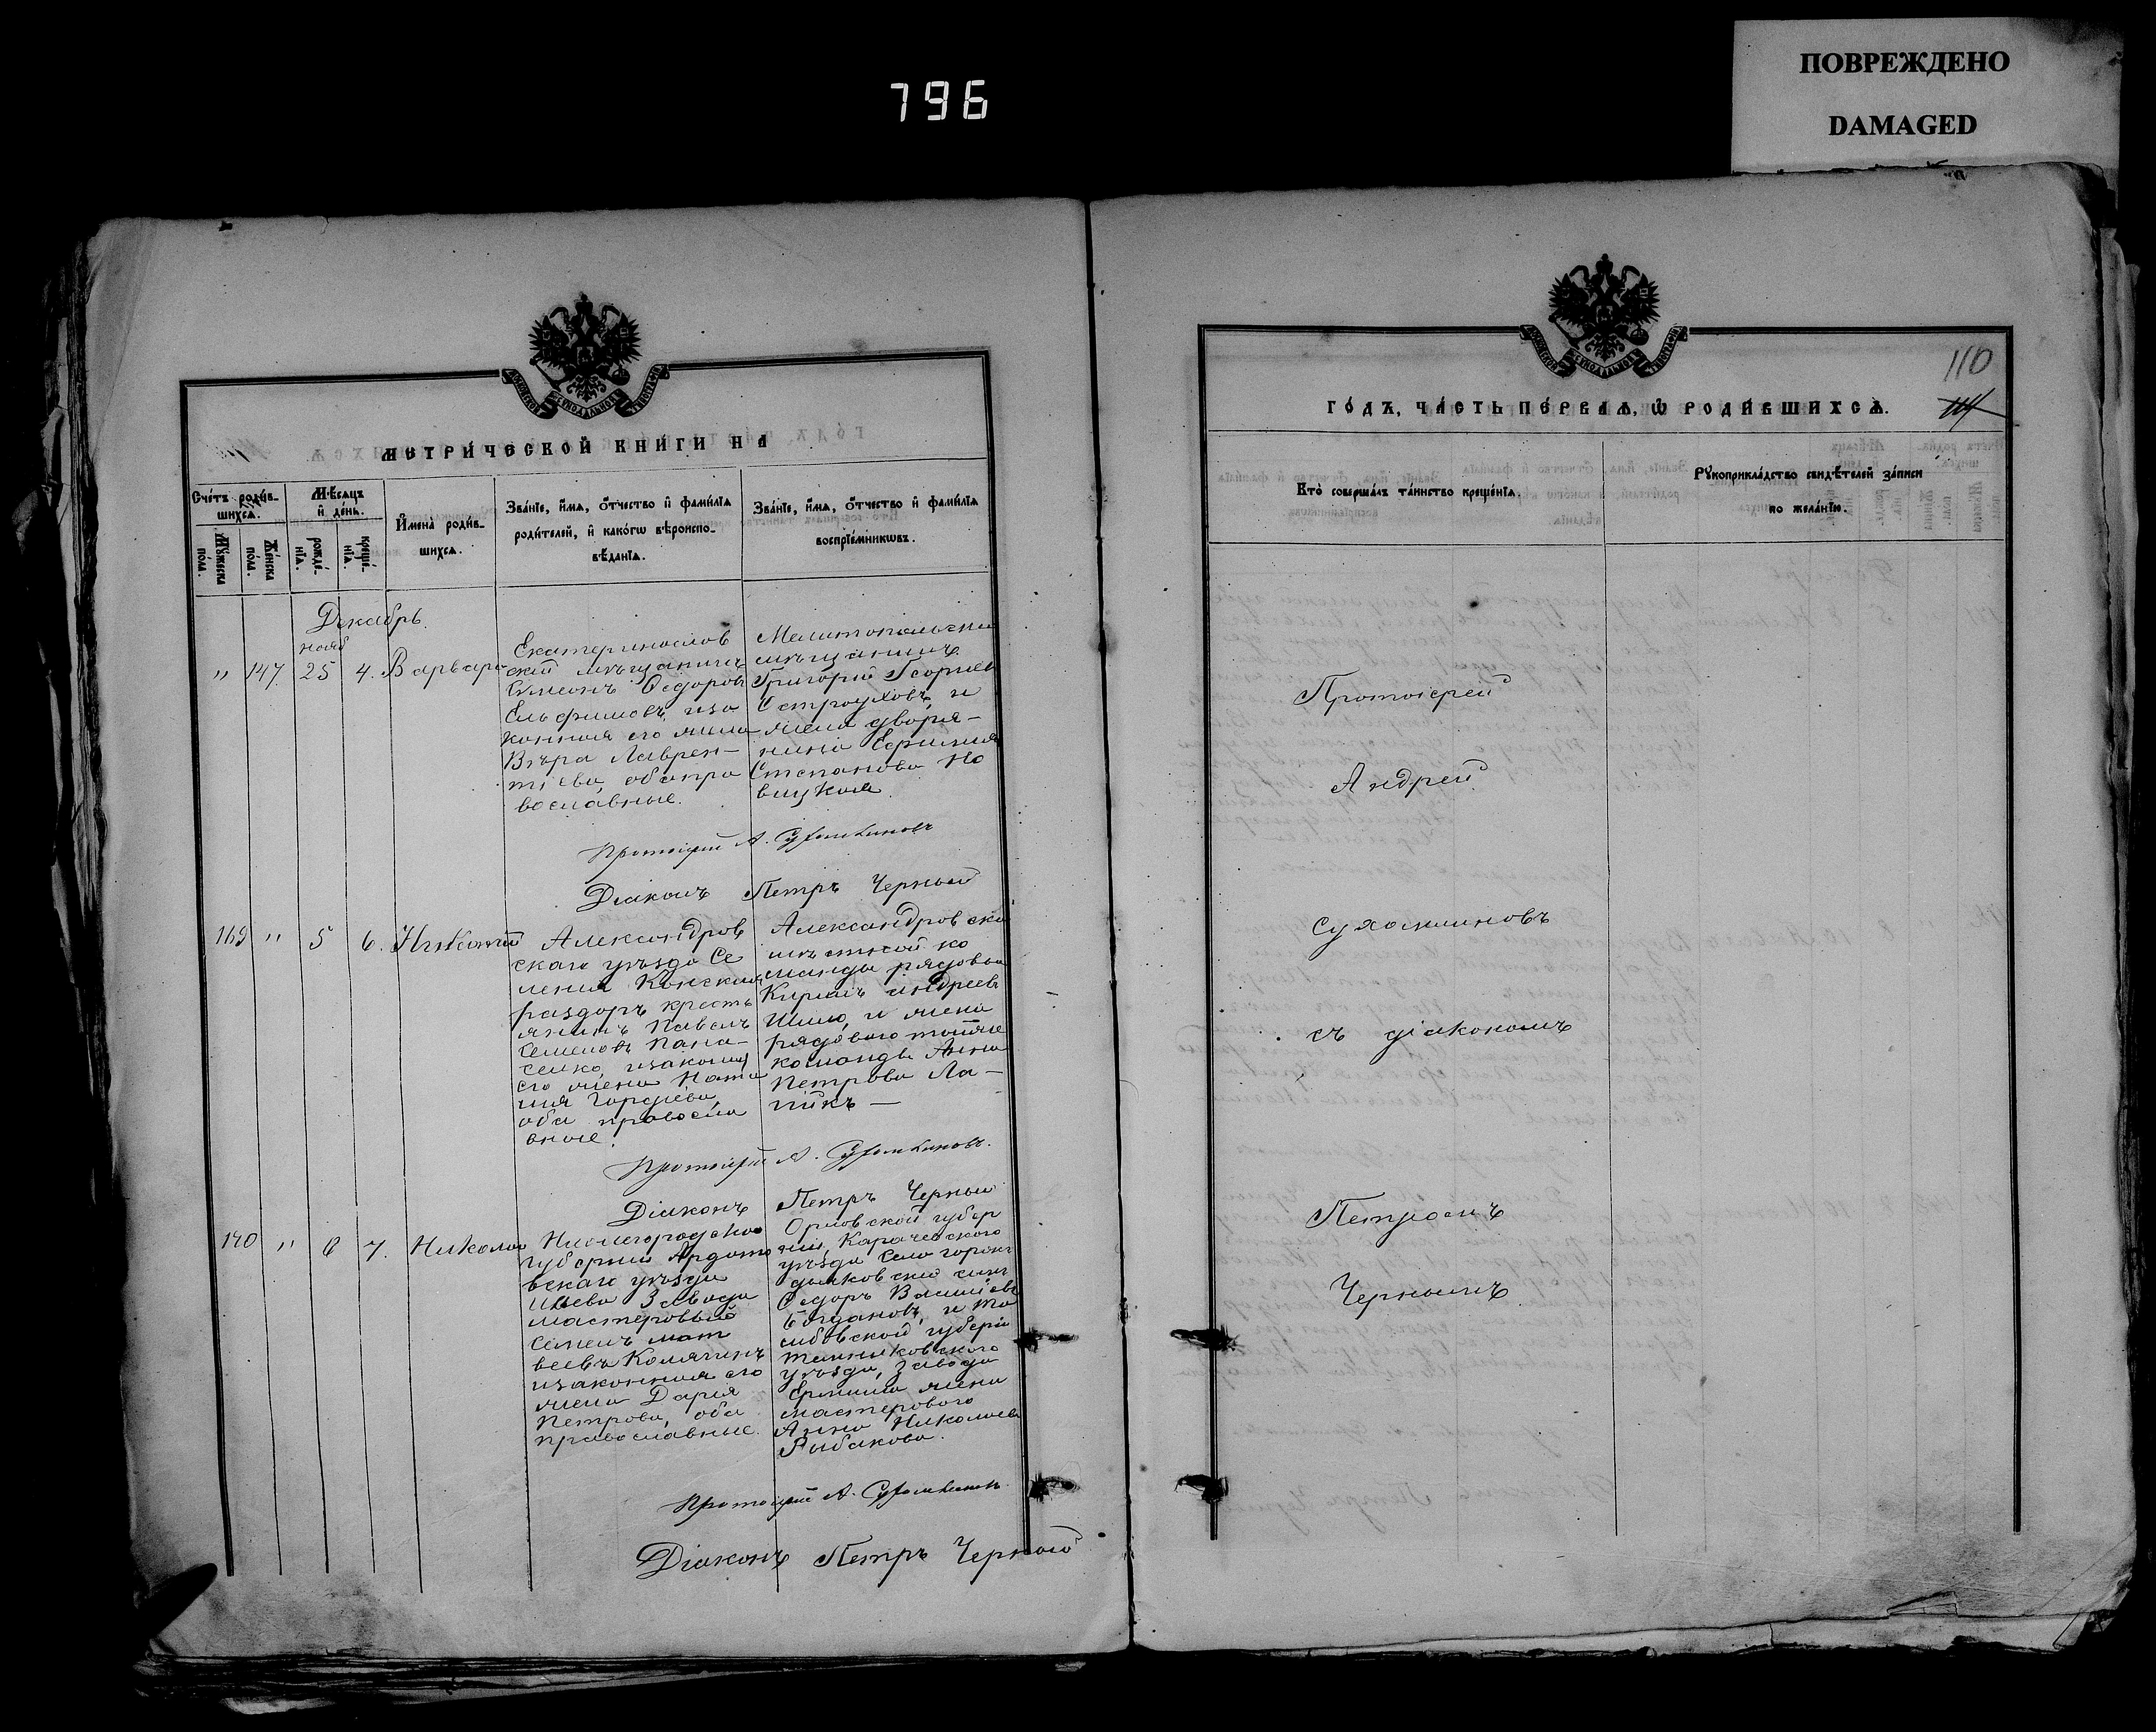 796
ПОВРЕЖДЕНО
DAMAGED
МЕТРИЧЕСКОЙ КНИГИ НА
Счетъ родив-
шихся.
Мѣсяцъ
и день.
Мужеска
пола.
Женска
пола.
рожде-
нія.
креще-
нія.
Имена родив-
шихся.
Званіе, имя, отчество и фамилія
родителей, и какогѡ вѣроиспо-
вѣданія.
Званіе, имя, отчество и фамилія
воспріемникωвъ.
Декабрь.
нояб
" 147 25 4. Варвара
Екатеринослов
скій мѣщанинъ
Симеонъ Ѳедоровъ
Ельфимовъ, и за
конная его жена
Вѣра Лаврен-
тіева, оба пра
вославные.
Мелитопольскій
мѣщанинъ
Григорій Георгіевъ
Остроуховъ, и
жена дворя-
нина Ефимія
Степанова Но
вицкая.
Протоіерей А. Сухомлиновъ
Діаконъ Петръ Черный
169 " 5 6.
Александров
скаго уѣзда Се
ленія Конския
раздоръ кресть
янинъ Павелъ
Семеновъ Пана-
сенко, и законная
его жена Ната
лія Гордіева,
оба правосла
вные.
Александровской
мѣстной ко
манды рядовый
Кирилъ Андреевъ
Шило, и жена
рядового той же
команды Анна
Петрова Ла-
пикъ —
Протоіерей А. Сухомлиновъ.
Діаконъ Петръ Черный
170 " 6 7. Николай
Нижегородской
губерніи Ардато
вскаго уѣзда
Илева Завода
мастеровый
Семенъ Мат
веевъ Калягинъ
и законная его
жена Дарія
Петрова, оба
православные.
Орловской губер
ніи, Карачевского
уѣзда Село
Ѳедоръ Василіевъ
Богдановъ, и Та
мбовской губерніи
Темниковского
уѣзда, Завода
Ермиша жена
мастерового
Анна Николаева
Рыбакова.
Протоіерей А. Сухомлиновъ
Діаконъ Петръ Черный
110
ГОДЪ, ЧАСТЬ ПЕРВАЯ, Ѡ РОДИВШИХСЯ.
Кто совершалъ таинство крещенія.
Рукоприкладство свидѣтелей записи
по желанію.
Протоіерей
Андрей
Сухомлиновъ
съ діакономъ
Петромъ
Чернымъ